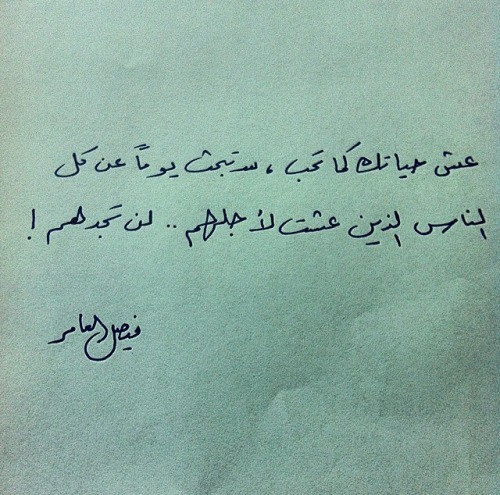 عش حياتك كما تحب ، ستبحث يوماً عن كل
الناس الذين عشت لأجلهم .. لن تجدهم !
فيصل العامر